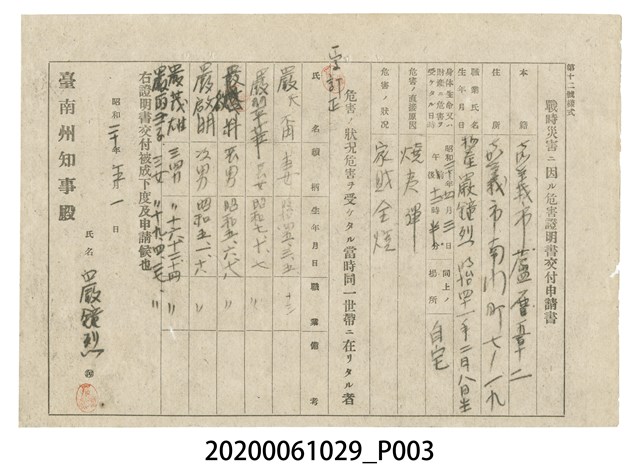 第十二號樣式
戰時災害ニ因ル危害證明書交付申請書
本籍 嘉義市蘆厝
住所 嘉義市南門町七ノ一九
職業氏名 嚴鐘烈
生年月日 明治四一年二月八日生
身体生命又ハ財產ニ危害ヲ受ケタル日時 昭和二十年四月三日 午後十二時 分
同上ノ場所 自宅
危害ノ直接原因 燒夷彈
危害ノ狀況 家財全燒
危害ノ狀況危害ヲ受ケタル當時同一世帶ニ在リタル者
氏名 續柄 生年月日 職業 備考
妻 明治四五、三、五
嚴 華 長女 昭和七、
長男 昭和五、六、八
嚴啟明 次男 昭和五一、六
嚴茂雄 三男 〃十六、十二、十四 〃
三女 〃十九、四、 〃
右證明書交付被成下度及申請候也
昭和二十年 一日
氏名 嚴鐘烈 ㊞
臺南州知事殿
20200061029_P003